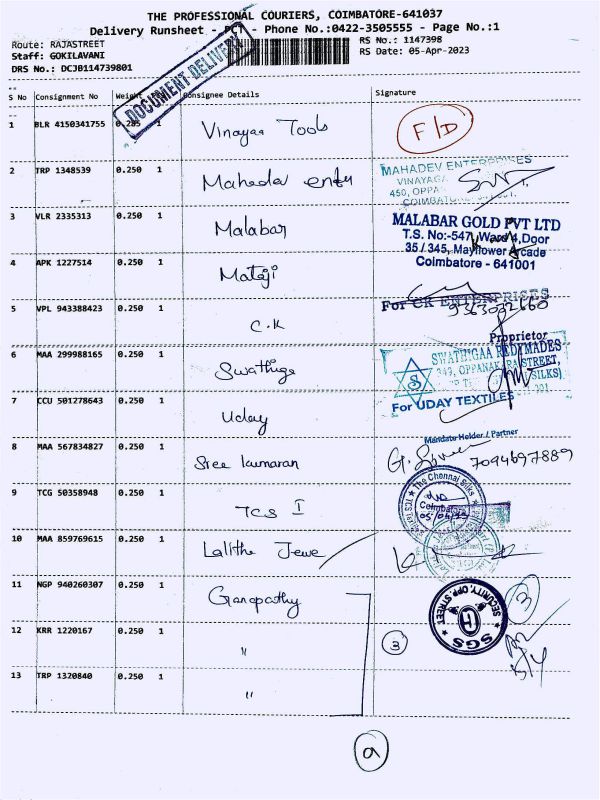 THE PROFESSIONAL COURIERS, COIMBATORE-641037
Delivery Runsheet - PCT - Phone No.:0422-3505555 - Page No.:1
Route: RAJASTREET
RS No.: 1147398
Staff: GOKILAVANI
RS Date: 05-Apr-2023
DRS No.: DCJB114739801
DOCUMENT DELIVERY
S No Consignment No Weight Consignee Details Signature
1 BLR 4150341755 0.285 1 Vinayaa Tools F/D
2 TRP 1348539 0.250 1 Mahadev
MAHADEV ENTERPRISES
VINAYAGA
450, OPPA
COIMBAT
3 VLR 2335313 0.250 1 Malabar
MALABAR GOLD PVT LTD
T.S. No:-547, Ward 4, Door
35 / 345, Mayflower Arcade
Coimbatore - 641001
4 APK 1227514 0.250 1 Mataji
5 VPL 943388423 0.250 1 C.K
For CK ENTERPRISES
9363072660
Proprietor
6 MAA 299988165 0.250 1 Swathiga
SWATHIGAA REDIMADES
349, OPPANAKARA STREET,
SILKS)
7 CCU 501278643 0.250 1 Uday
For UDAY TEXTILES
Mandate Holder / Partner
8 MAA 567834827 0.250 1 Sree kumaran
7094697889
9 TCG 50358948 0.250 1 TCS I
The Chennai Silks
Coimbatore
10 MAA 859769615 0.250 1 Lalitha Jewe
11 NGP 940260307 0.250 1 Ganapathy
SECURITY, OPP. STREET
SGS
3
12 KRR 1220167 0.250 1 "
3
13 TRP 1320840 0.250 1 "
a